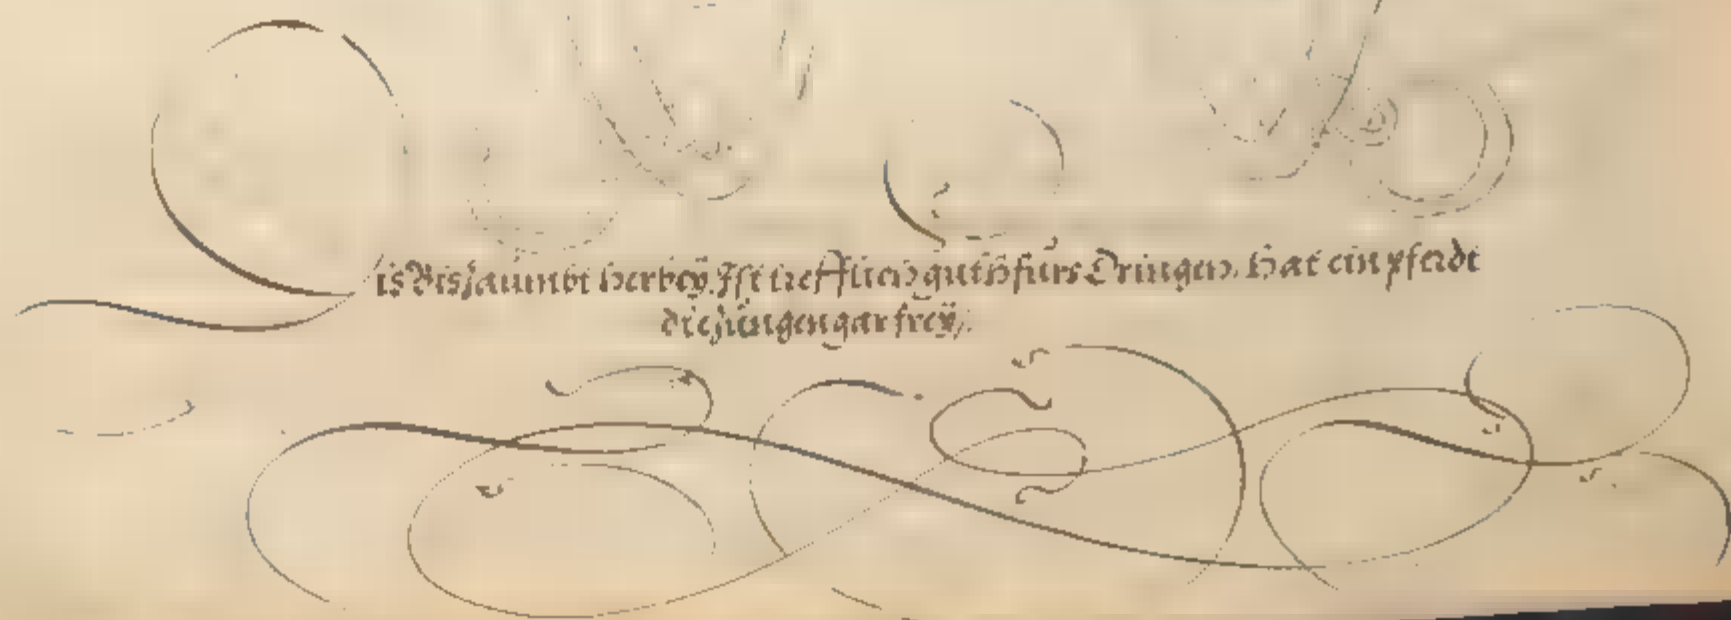 Dis Bis zaümbt herbeÿ. Ist trefflich guth fürs Dringen. Hat ein pferdt
die züngen gar freÿ.